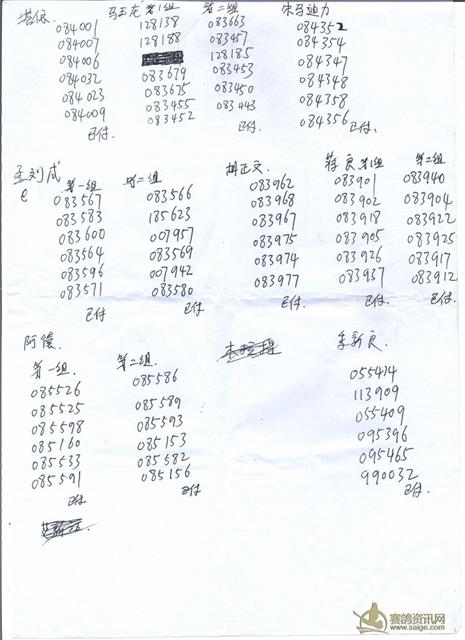 马玉龙 第1组 第二组
084001 128138 083663 084352
084007 128188 083457 084354
084006 128185 084347
084032 083679 083453 084348
084023 083675 083450 084358
084009 083455 083443 084356
083452
已付. 已付. 已付.
孟刘成 第一组 第二组 胡正文 蒋良 第1组 第二组
083567 083566 083962 083901 083940
083583 185623 083968 083902 083904
083600 007957 083967 083918 083922
083564 083569 083975 083905 083925
083596 007942 083974 083926 083917
083571 083580 083977 083937 083912
已付 已付 已付 已付 已付
阿德. 李新良.
第一组. 第二组.
085526 085586 055414
085525 085589 113909
085598 085593 055409
085160 085153 095396
085533 085582 095465
085591 085156 990032
已付 已付 已付.
赛鸽资讯网
www.saige.com